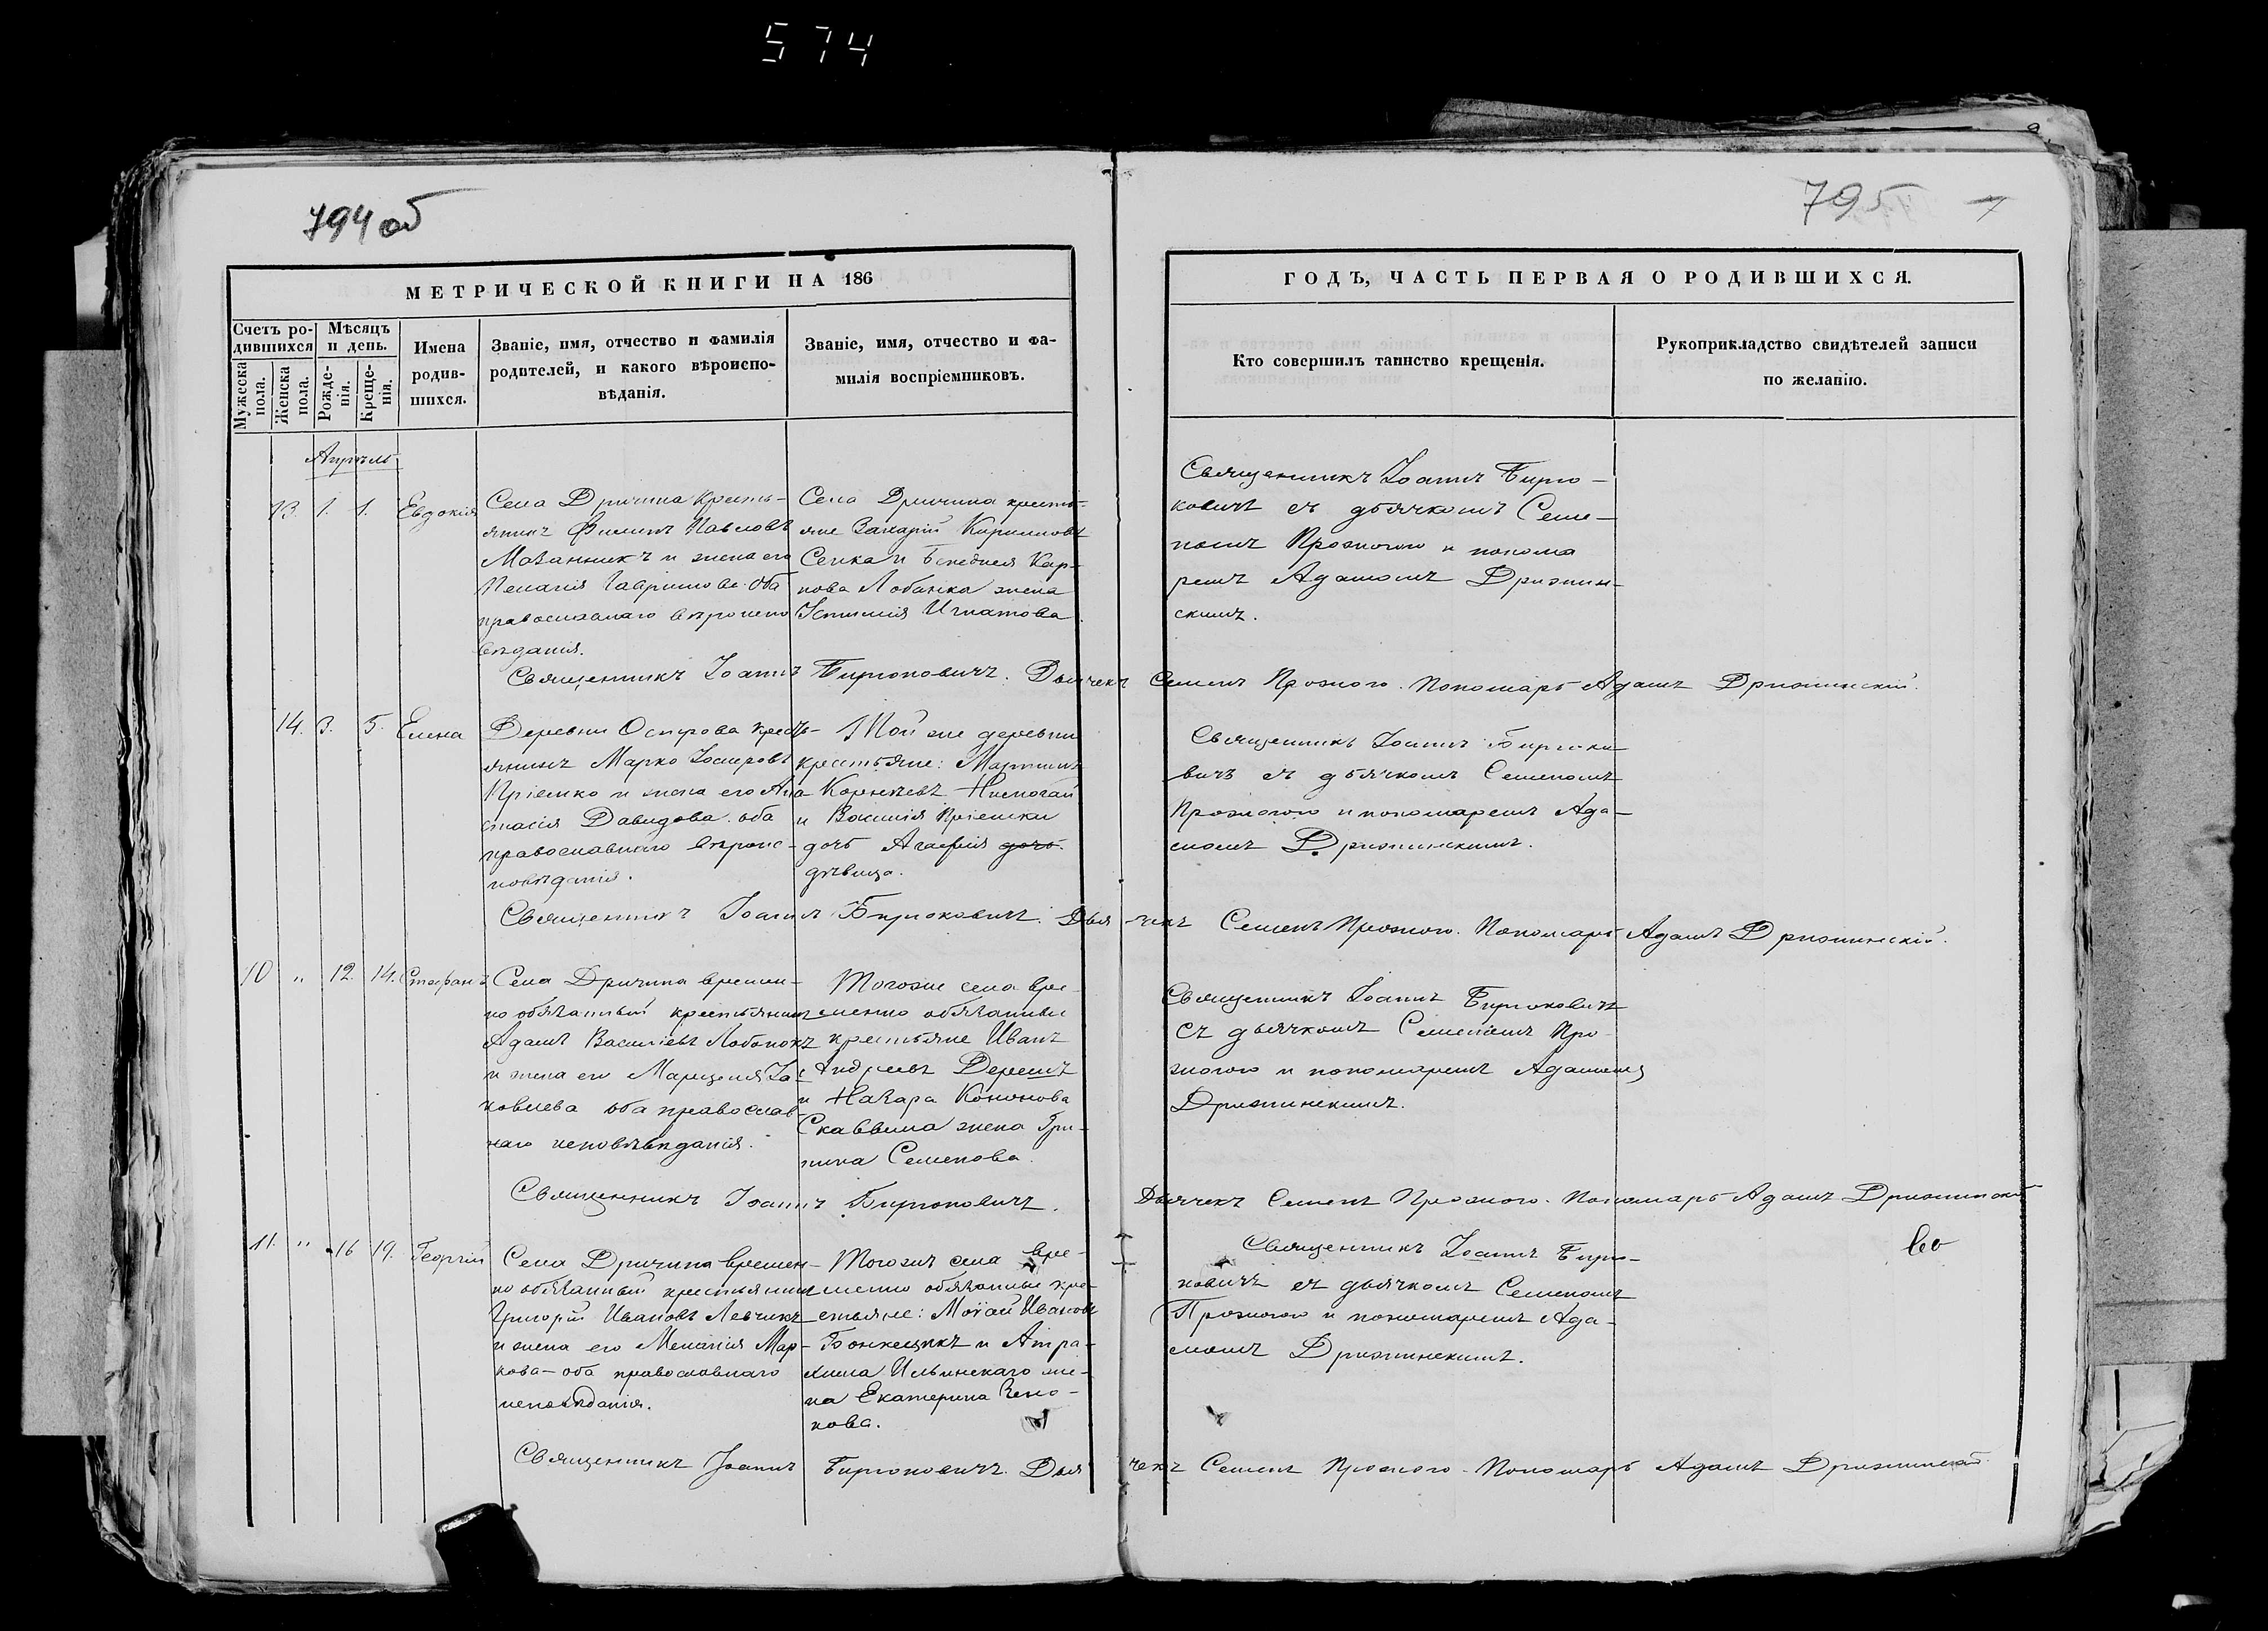 574
794 об
795
МЕТРИЧЕСКОЙ КНИГИ НА 186
Счетъ ро-
дившихся
Мѣсяцъ
и день.
Мужеска
пола.
Женска
пола.
Рожде-
нія.
Креще-
нія.
Имена
родив-
шихся.
Званіе, имя, отчество и фамилія
родителей, и какого вѣроиспо-
вѣданія.
Званіе, имя, отчество и фа-
милія воспріемниковъ.
ГОДЪ, ЧАСТЬ ПЕРВАЯ О РОДИВШИХСЯ.
Кто совершилъ таинство крещенія.
Рукоприкладство свидѣтелей записи
по желанію.
Апрѣль
13. 1. 1. Евдокія
Села Дричина кресть-
янинъ Филипъ Павловъ
и жена его
Пелагія Гаврилова оба
православнаго вѣроиспо
вѣданія.
Села Дричина кресть
яне Захарій
Сенка и Кар-
пова Лобанка жена
Игнатова
Священникъ Іоаннъ Бирю-
ковичъ съ дьячкомъ Семе-
номъ Прожогою и понома
ремъ Адамомъ Дрижин-
скимъ.
Священникъ Іоаннъ Бирюковичъ. Дьячекъ Семенъ Прожога. Пономарь Адамъ Дрижинскій.
14. 3. 5. Елена
Деревни Острова кресть-
янинъ Марко Іосифовъ
Пріемко и жена его Ана
стасія Давидова оба
православнаго вѣроис-
повѣданія.
Той же деревни
крестьяне: Мартинъ
Корнѣевъ
и Василія Пріемки
дочь Агафія дочь
дѣвица.
Священникъ Іоаннъ Бирюко
вичъ съ дьячкомъ Семеномъ
Прожогою и пономаремъ Ада-
момъ Дрижинскимъ.
Священникъ Іоаннъ Бирюковичъ. Дьячекъ Семенъ Прожога. Пономарь Адамъ Дрижинскій.
10 " 12. 14. Стефанъ
Села Дричина времен-
но обязанный крестьянинъ
Адамъ Васильевъ Лобанокъ
и жена его Іа-
ковлева оба православ-
наго исповѣданія.
Тогоже села вре-
менно обязанные
крестьяне Иванъ
Андреевъ Дерешъ
и Назара Кононова
жена Гри-
пина Семенова.
Священникъ Іоаннъ Бирюковичъ
съ дьячкомъ Семеномъ Про-
жогою и пономаремъ Адамомъ
Дрижинскимъ.
Священникъ Іоаннъ Бирюковичъ. Дьячекъ Семенъ Прожога. Пономарь Адамъ Дрижинскій
11. " 16 19. Георгій
Села Дричина времен-
но обязанный крестьянинъ
Григорій Ивановъ Левчикъ
и жена его Меланія Мар-
кова оба православнаго
исповѣданія.
Тогожъ села вре-
менно обязанные кре-
стьяне: Ивановъ
и
Ильинскаго же-
на Екатерина Зено-
кова.
Священникъ Іоаннъ Бирю-
ковичъ съ дьячкомъ Семеномъ
Прожогою и пономаремъ Ада-
момъ Дрижинскимъ.
Священникъ Іоаннъ Бирюковичъ. Дьячекъ Семенъ Прожога. Пономарь Адамъ Дрижинскій.